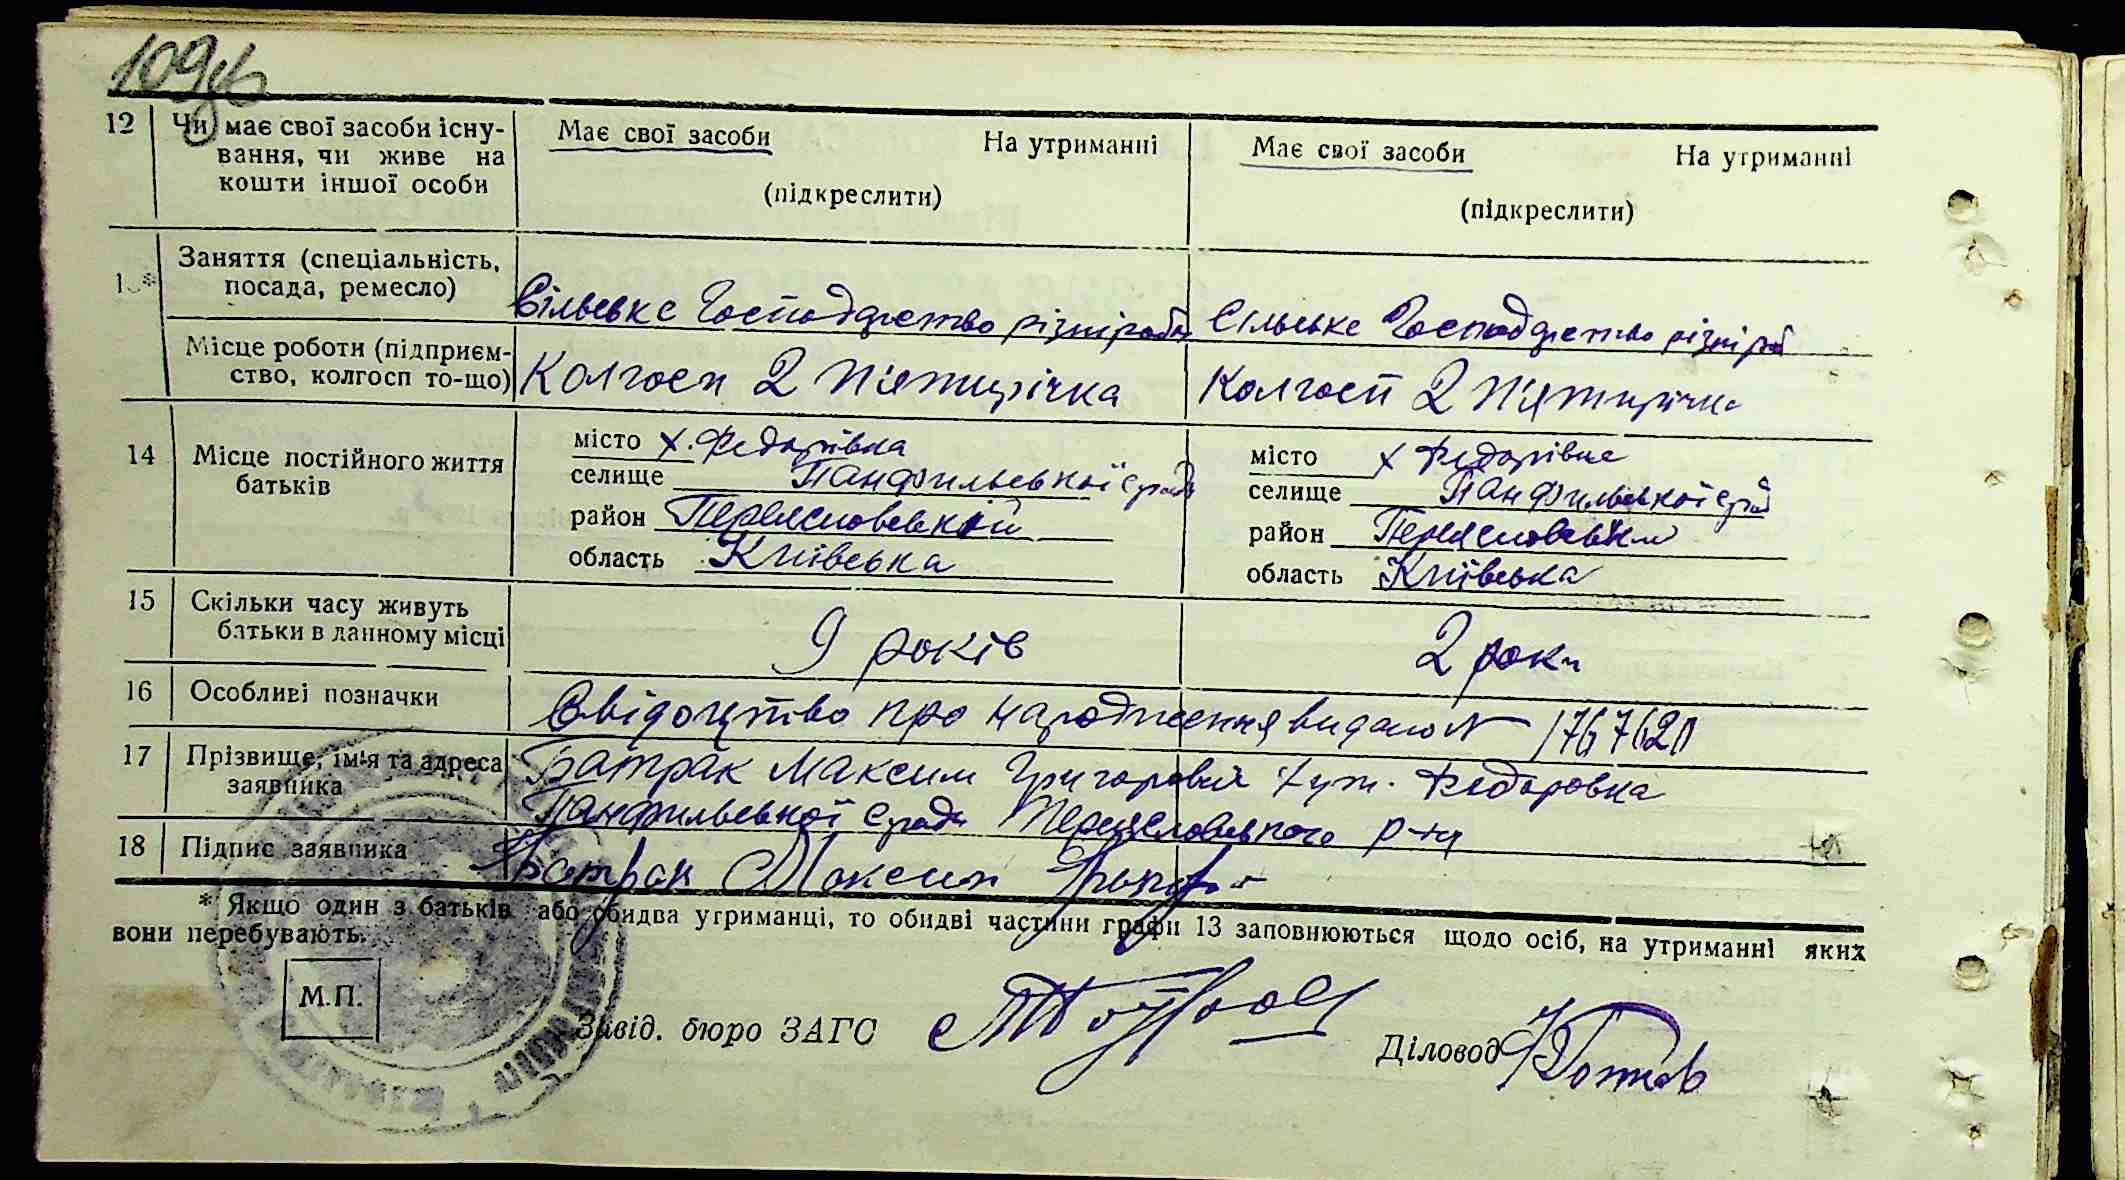 109
12 Чи має свої засоби існу- Має свої засоби На утриманні Має свої засоби На утриманні
вання, чи живе на
кошти іншої особи (підкреслити) (підкреслити)
Заняття (спеціальність,
посада, ремесло) Сільське Господарство різнороб Сільське Господарство різнороб
Місце роботи (підприєм-
ство, колгосп то-що) Колгосп 2 П'ятирічка Колгосп 2 П'ятирічка
14 Місце постійного життя
батьків
місто х. Федорівка місто х Федорівка
селище Панфильської с ради селище Панфильської с рад
район Переяславський район Переяславський
область Київська область Київська
15 Скільки часу живуть
батьки в данному місці 9 років 2 роки
16 Особливі позначки Свідоцтво про народження видано № 1767620
17 Прізвище, ім'я та адреса Батрак Максим Григорович хут. Федоровка
заявника Панфильської с ради Переяславського р-на
18 Підпис заявника Батрак Максим
* Якщо один з батьків або обидва утриманці, то обидві частини графи 13 заповнюються щодо осіб, на утриманні яких
вони перебувають.
М.П.
Завід. бюро ЗАГС
Діловод